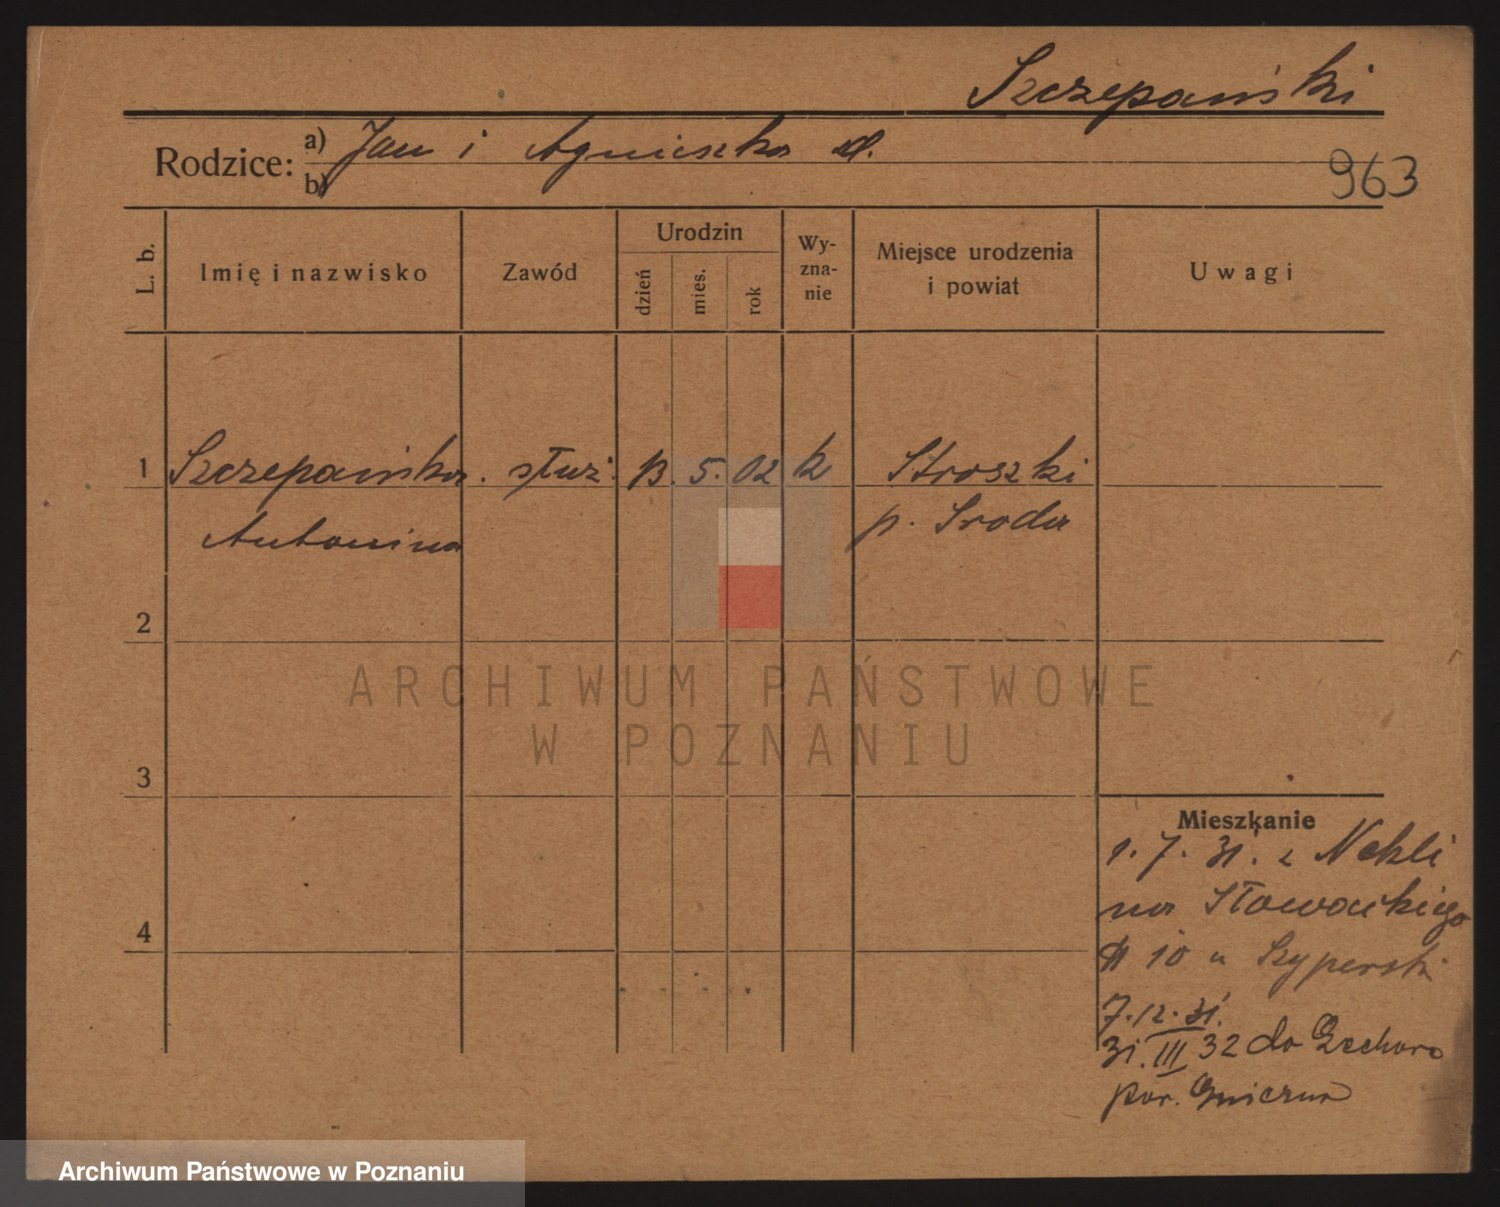 Szczepański
Rodzice:
a) Jan i Agnieszka d.
b)
963
L. b.
Imię i nazwisko
Zawód
Urodzin
dzień
mies.
rok
Wy-
zna-
nie
Miejsce urodzenia
i powiat
Uwagi
1 Szczepańska. służ. 13. 5. 02 k Stroszki
Antonina p. Sroda
2
3
4
Mieszkanie
1. 7. 31. z Nekli
na Słowackiego
10 u Szyperski
7.12.31.
31. III 32 do
pow. Gniezna
ARCHIWUM PAŃSTWOWE
W POZNANIU
Archiwum Państwowe w Poznaniu